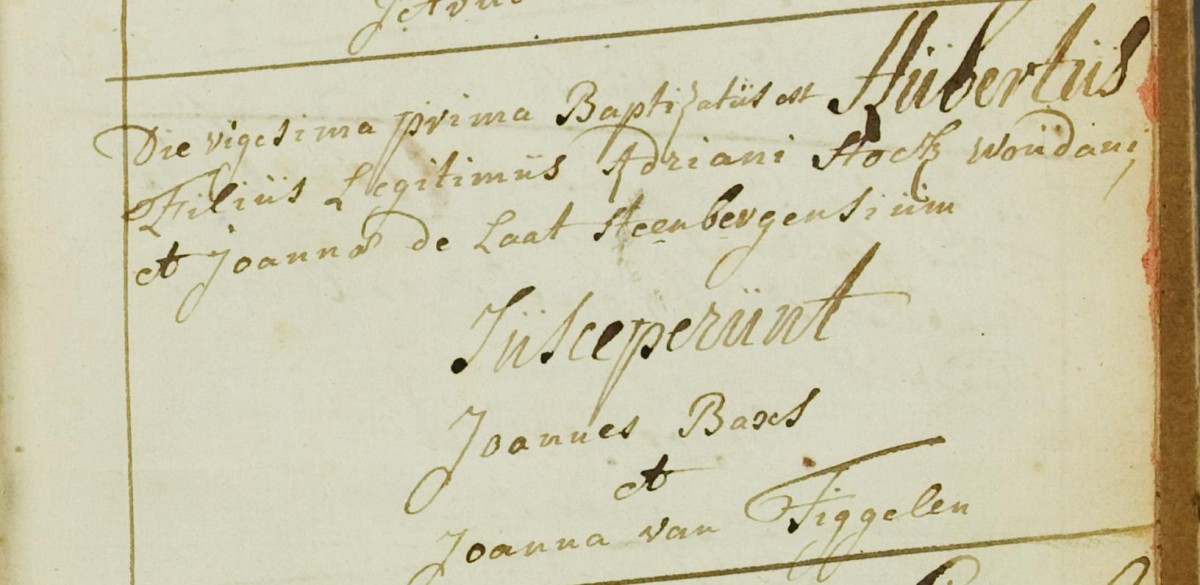 Die vigesima prima Baptizatüs est Hübertüs
Filiüs Legitimüs Adriani Stock Woüdani
et Joannæ de Laat Steenbergensiüm
Süsceperünt
Joannes Baxs
et
Joanna van Tiggelen